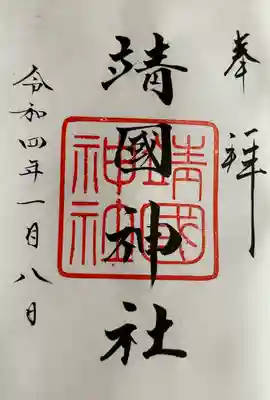 奉拝
靖國神社
靖國神社
令和四年一月八日